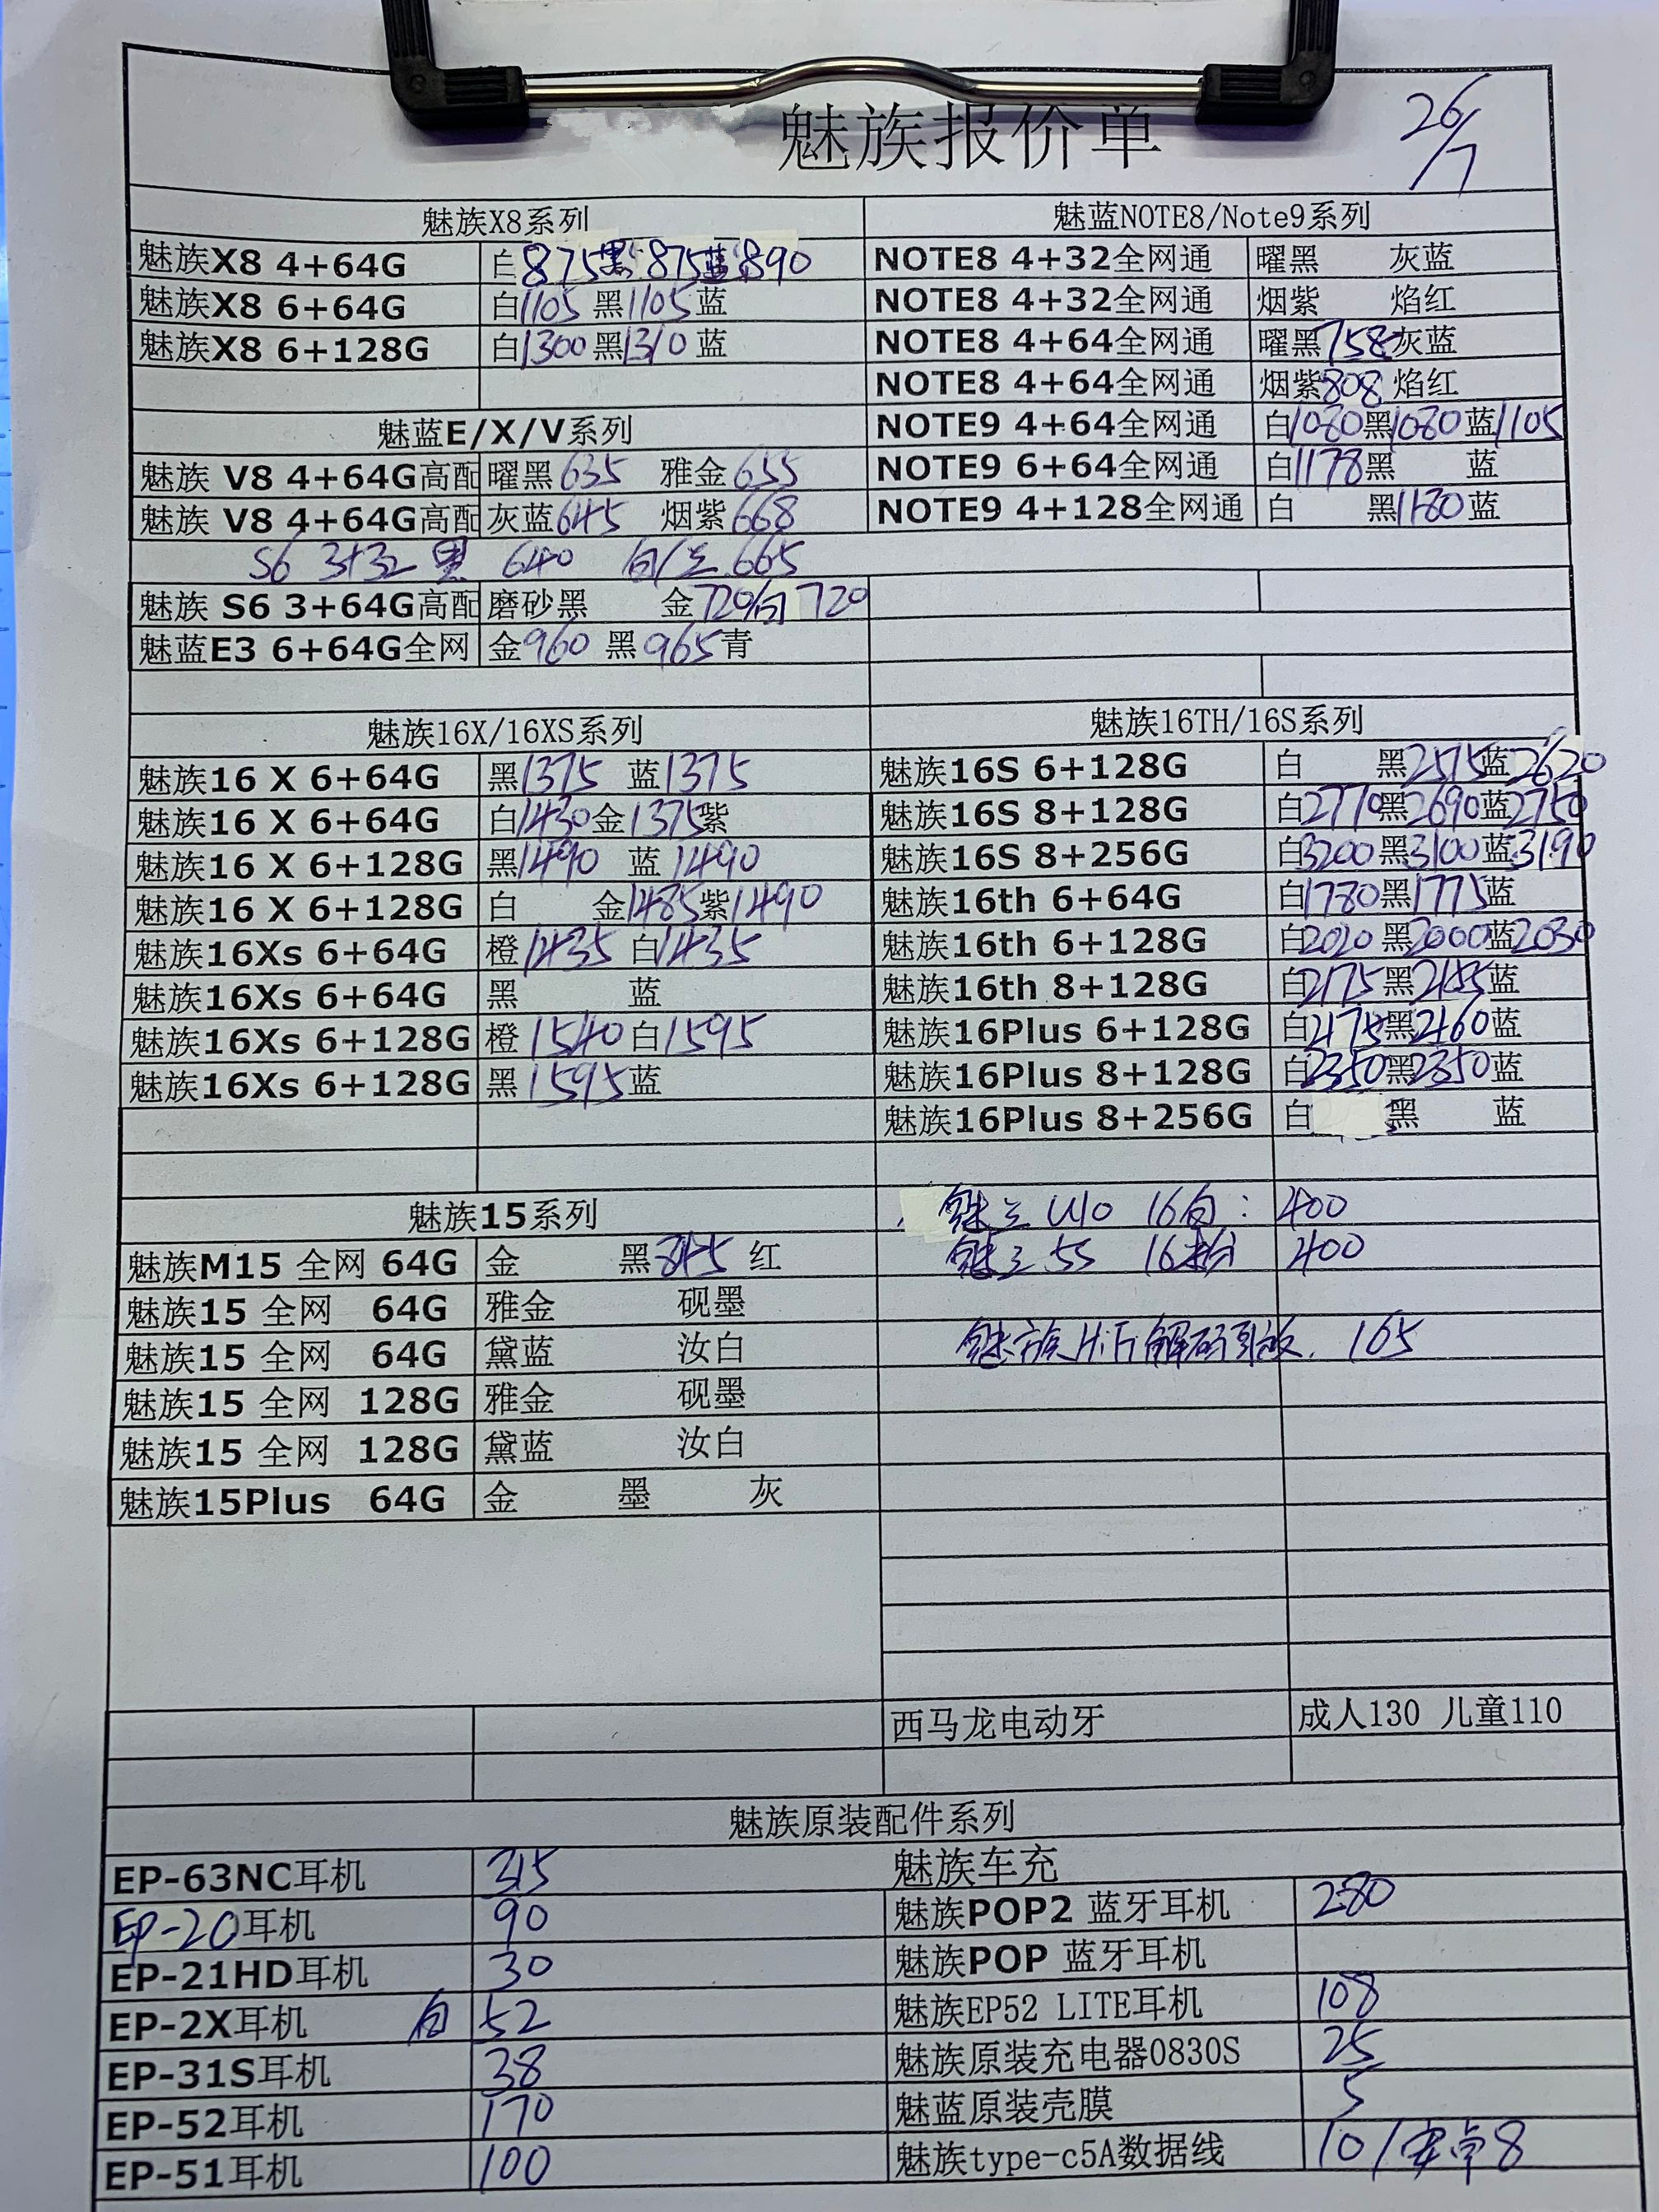 魅族报价单
26/7
魅族X8系列
魅族X8 4+64G 白875黑875蓝890
魅族X8 6+64G 白1105 黑1105 蓝
魅族X8 6+128G 白1300 黑1310 蓝
魅蓝NOTE8/Note9系列
NOTE8 4+32全网通 曜黑 灰蓝
NOTE8 4+32全网通 烟紫 焰红
NOTE8 4+64全网通 曜黑758灰蓝
NOTE8 4+64全网通 烟紫808 焰红
NOTE9 4+64全网通 白1080黑1080蓝1105
NOTE9 6+64全网通 白1178黑 蓝
NOTE9 4+128全网通 白 黑1180蓝
魅蓝E/X/V系列
魅族 V8 4+64G高配 曜黑635 雅金655
魅族 V8 4+64G高配 灰蓝645 烟紫668
S6 3+32 黑 640 白/兰 665
魅族 S6 3+64G高配 磨砂黑 金720/白720
魅蓝E3 6+64G全网 金960 黑965青
魅族16X/16XS系列
魅族16 X 6+64G 黑1375 蓝1375
魅族16 X 6+64G 白1430金1375紫
魅族16 X 6+128G 黑1490 蓝1490
魅族16 X 6+128G 白 金1485紫1490
魅族16Xs 6+64G 橙1435 白1435
魅族16Xs 6+64G 黑 蓝
魅族16Xs 6+128G 橙1540白1595
魅族16Xs 6+128G 黑1595蓝
魅族16TH/16S系列
魅族16S 6+128G 白 黑2575蓝2620
魅族16S 8+128G 白2770黑2690蓝2750
魅族16S 8+256G 白3200黑3100蓝3190
魅族16th 6+64G 白1780黑1775蓝
魅族16th 6+128G 白2020黑2000蓝2030
魅族16th 8+128G 白2175黑2185蓝
魅族16Plus 6+128G 白 黑2160蓝
魅族16Plus 8+128G 白2350黑2350蓝
魅族16Plus 8+256G 白 黑 蓝
魅族15系列
魅族M15 全网 64G 金 黑 红
魅族15 全网 64G 雅金 砚墨
魅族15 全网 64G 黛蓝 汝白
魅族15 全网 128G 雅金 砚墨
魅族15 全网 128G 黛蓝 汝白
魅族15Plus 64G 金 墨 灰
魅兰 U10 16白: 400
魅兰 5S 16粉 400
魅族 解码耳放. 165
西马龙电动牙 成人130 儿童110
魅族原装配件系列
EP-63NC耳机 315
EP-20耳机 90
EP-21HD耳机 30
EP-2X耳机 白 52
EP-31S耳机 38
EP-52耳机 170
EP-51耳机 100
魅族车充
魅族POP2 蓝牙耳机 280
魅族POP 蓝牙耳机
魅族EP52 LITE耳机 108
魅族原装充电器0830S 25
魅蓝原装壳膜 5
魅族type-c5A数据线 10/安卓8